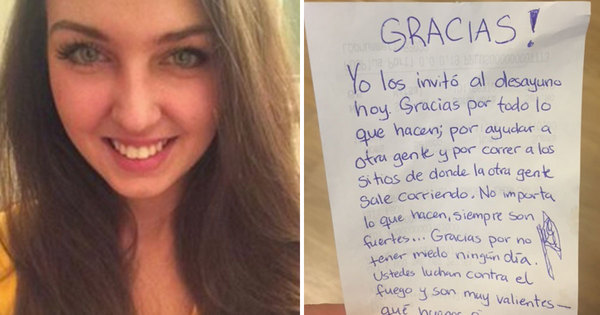 GRACIAS!
Yo los invitó al desayuno
hoy. Gracias por todo lo
que hacen; por ayudar a
otra gente y por correr a los
sitios de donde la otra gente
sale corriendo. No importa
lo que hacen, siempre son
fuertes... Gracias por no
tener miedo ningún día.
Ustedes luchan contra el
fuego y son muy valientes—